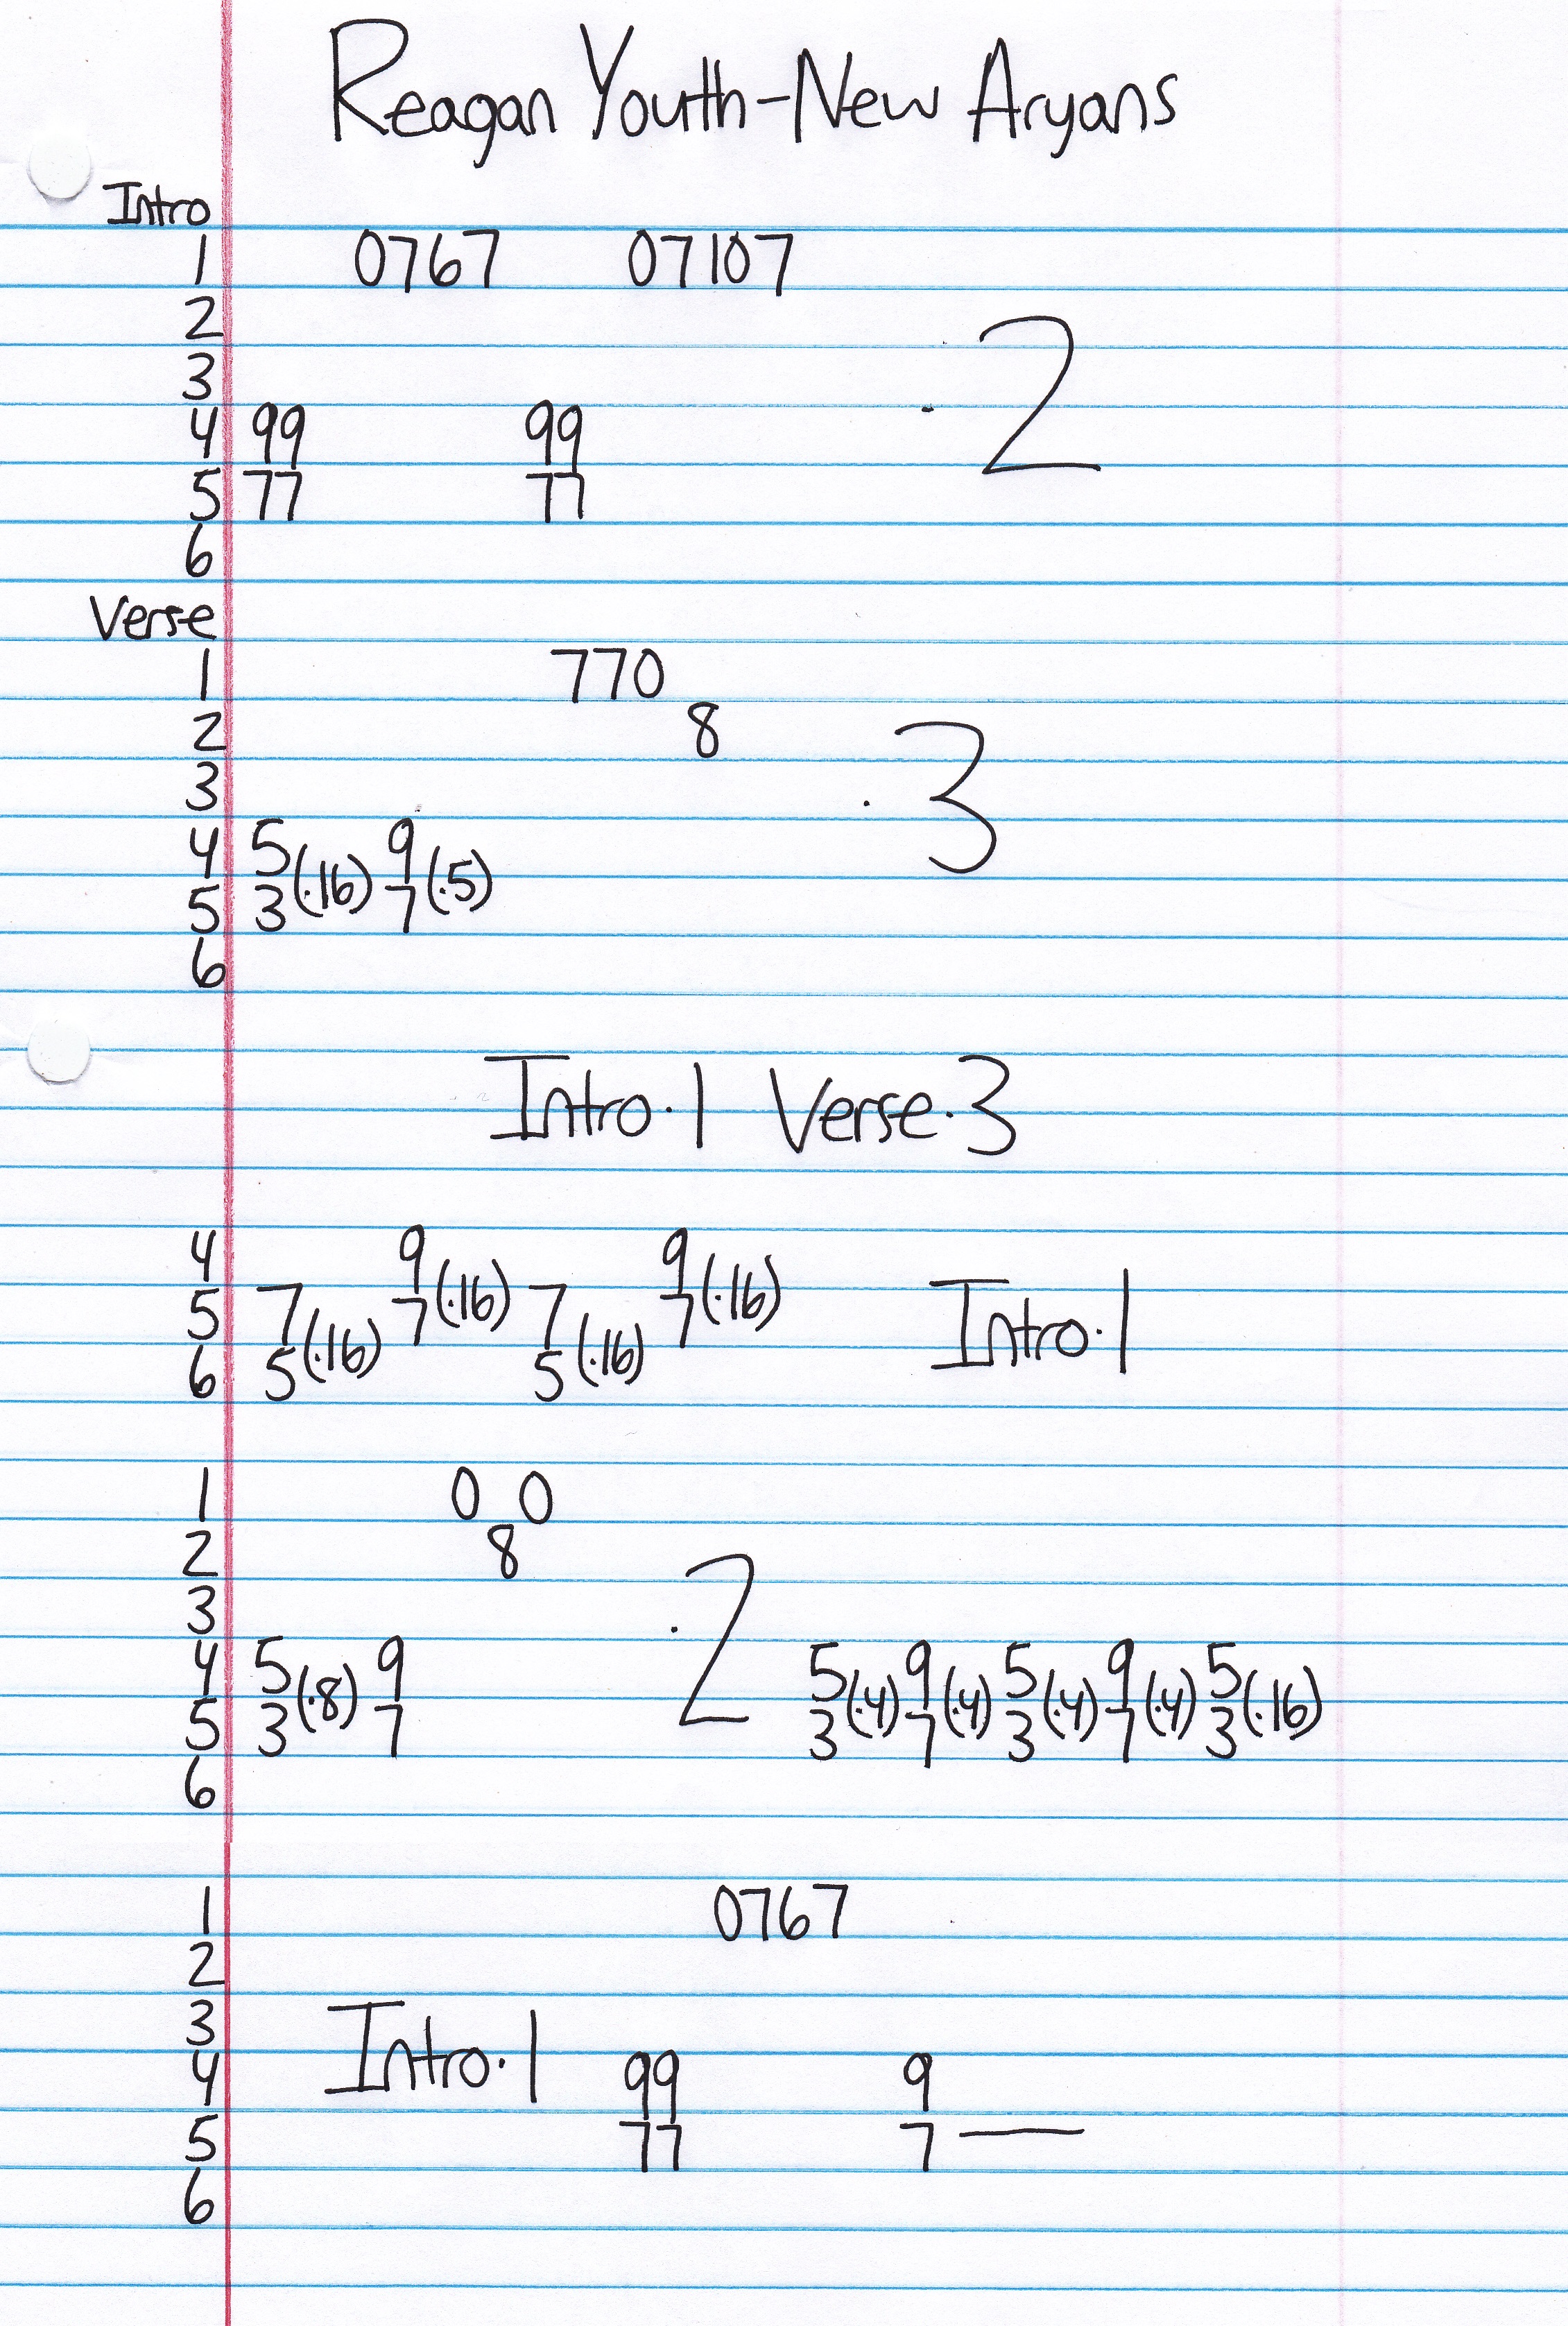 Reagan Youth-New Aryans
Intro
1 0767 07107
2 .2
3
4 99 99
5 77 77
6
Verse
1 770
2 8
3 .3
4 5 9
5 3(.16) 7(.5)
6
Intro.1 Verse.3
4 9(.16) 9(.16)
5 7 7 7 7 Intro.1
6 5(.16) 5(.16)
1 0 0
2 8
3 .2
4 5 9 5 9 5 9 5
5 3(.8) 7 3(.4) 7(.4) 3(.4) 7(.4) 3(.16)
6
1 0767
2
3 Intro.1
4 99 9
5 77 7—
6